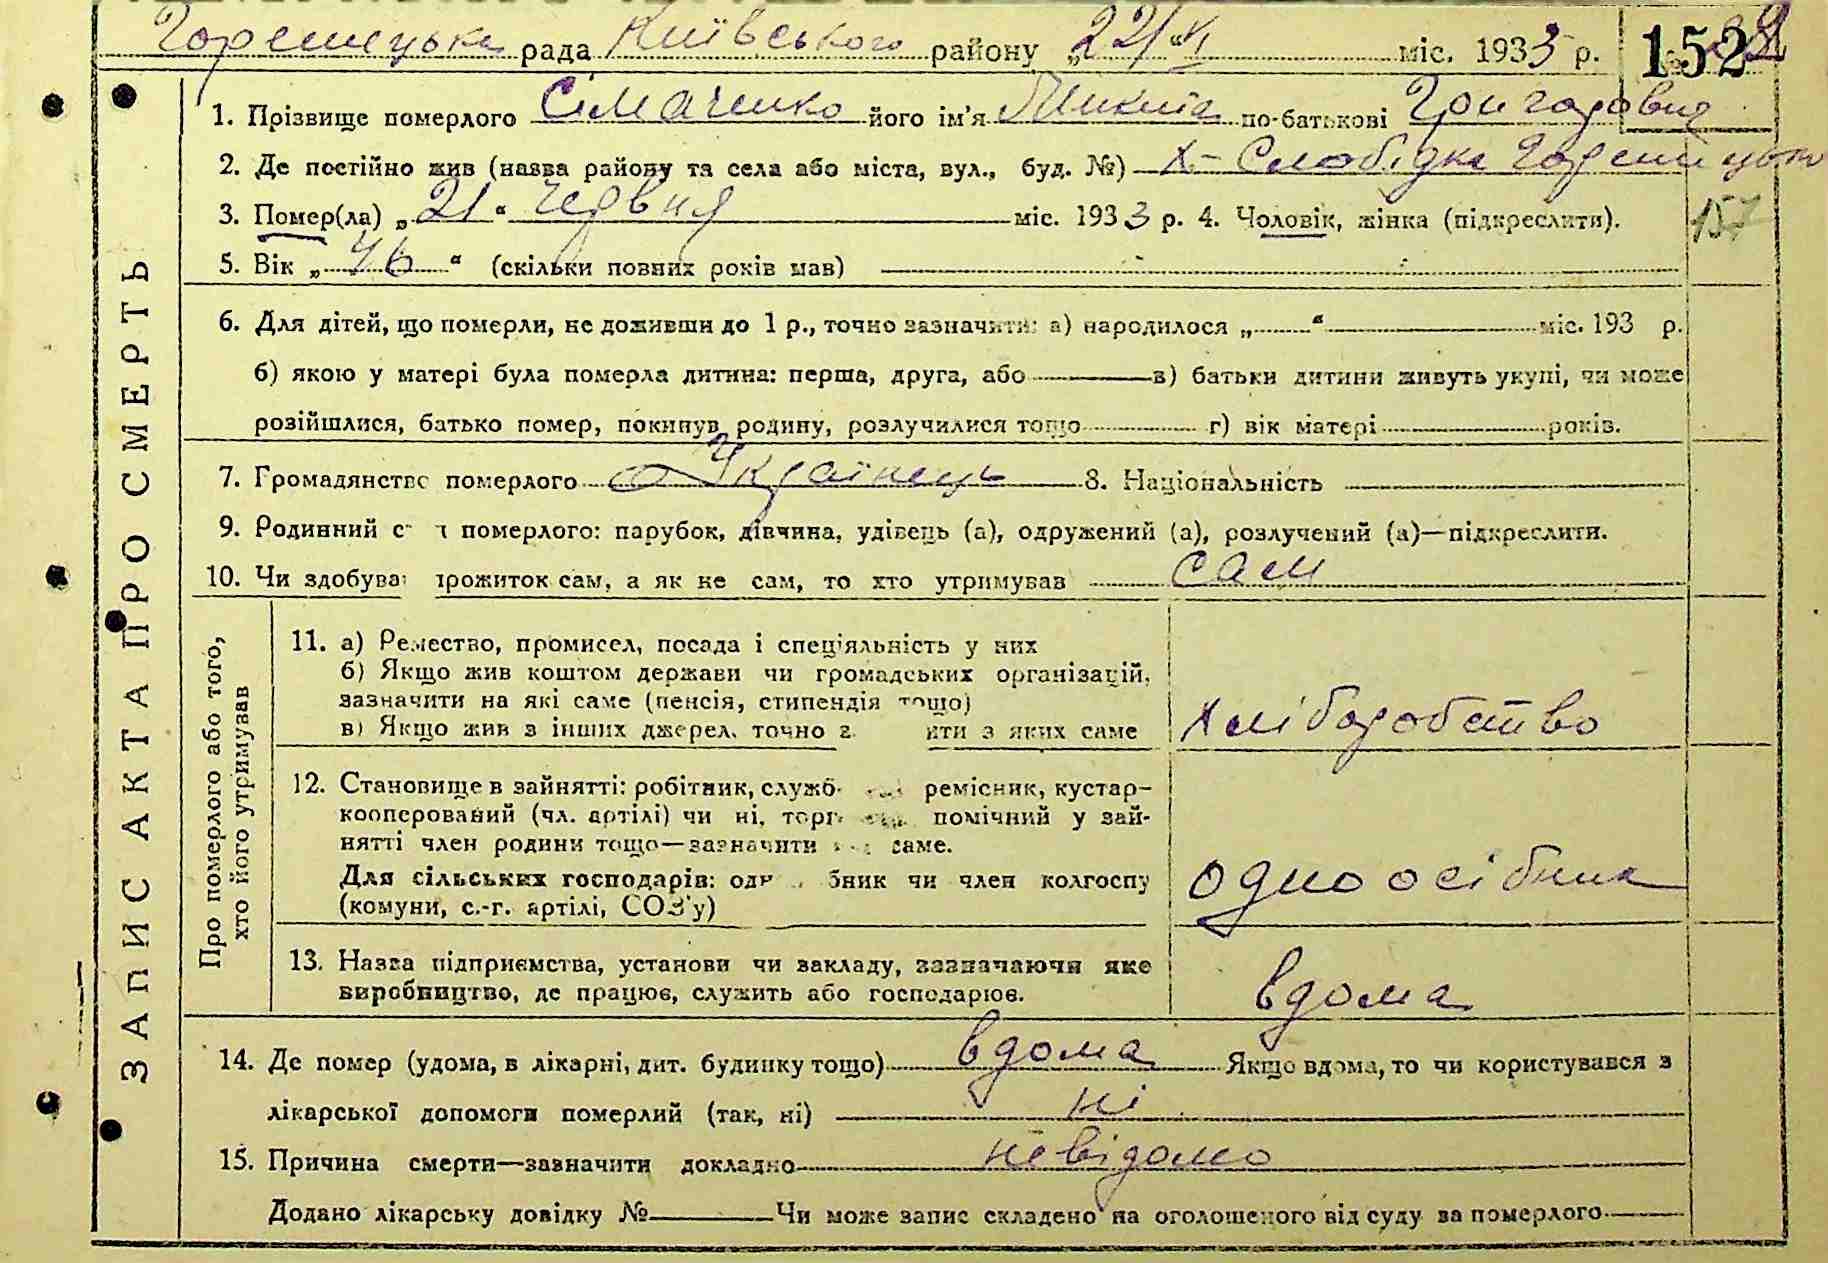 Гореницька рада Київського району „22/VI міс. 1933 р. 152
1. Прізвище померлого Сімаченко його ім'я Микита по-батькові Григорович
2. Де постійно жив (назва району та села або міста, вул., буд. №) х- Слобідка Горениць
3. Помер(ла) „21“ червня міс. 1933 р. 4. Чоловік, жінка (підкреслити). 157
5. Вік „46“ (скільки повних років мав)
6. Для дітей, що померли, не доживши до 1 р., точно зазначити: а) народилося „ “ міс. 193 р.
б) якою у матері була померла дитина: перша, друга, або в) батьки дитини живуть укупі, чи може
розійшлися, батько помер, покинув родину, розлучилися тощо г) вік матері років.
7. Громадянство померлого Українець 8. Національність
9. Родинний с н померлого: парубок, дівчина, удівець (а), одружений (а), розлучений (а)—підкреслити.
10. Чи здобува прожиток сам, а як не сам, то хто утримував сам
ЗАПИС АКТА ПРО СМЕРТЬ
Про померлого або того,
хто його утримував
11. а) Ремество, промисел, посада і спеціяльність у них
б) Якщо жив коштом держави чи громадських організацій,
зазначити на які саме (пенсія, стипендія тощо)
в) Якщо жив з інших джерел, точно з ити з яких саме хліборобство
12. Становище в зайнятті: робітник, служб ремісник, кустар-
кооперований (чл. артілі) чи ні, торг помічний у зай-
нятті член родини тощо—зазначити саме.
Для сільських господарів: од бник чи член колгоспу одноосібник
(комуни, с.-г. артілі, СОЗ'у)
13. Назва підприємства, установи чи закладу, зазначаючи яке
виробництво, де працює, служить або господарює. вдома
14. Де помер (удома, в лікарні, дит. будинку тощо) вдома Якщо вдома, то чи користувався з
лікарської допомоги померлий (так, ні) ні
15. Причина смерти—зазначити докладно невідомо
Додано лікарську довідку № Чи може запис складено на оголошеного від суду за померлого